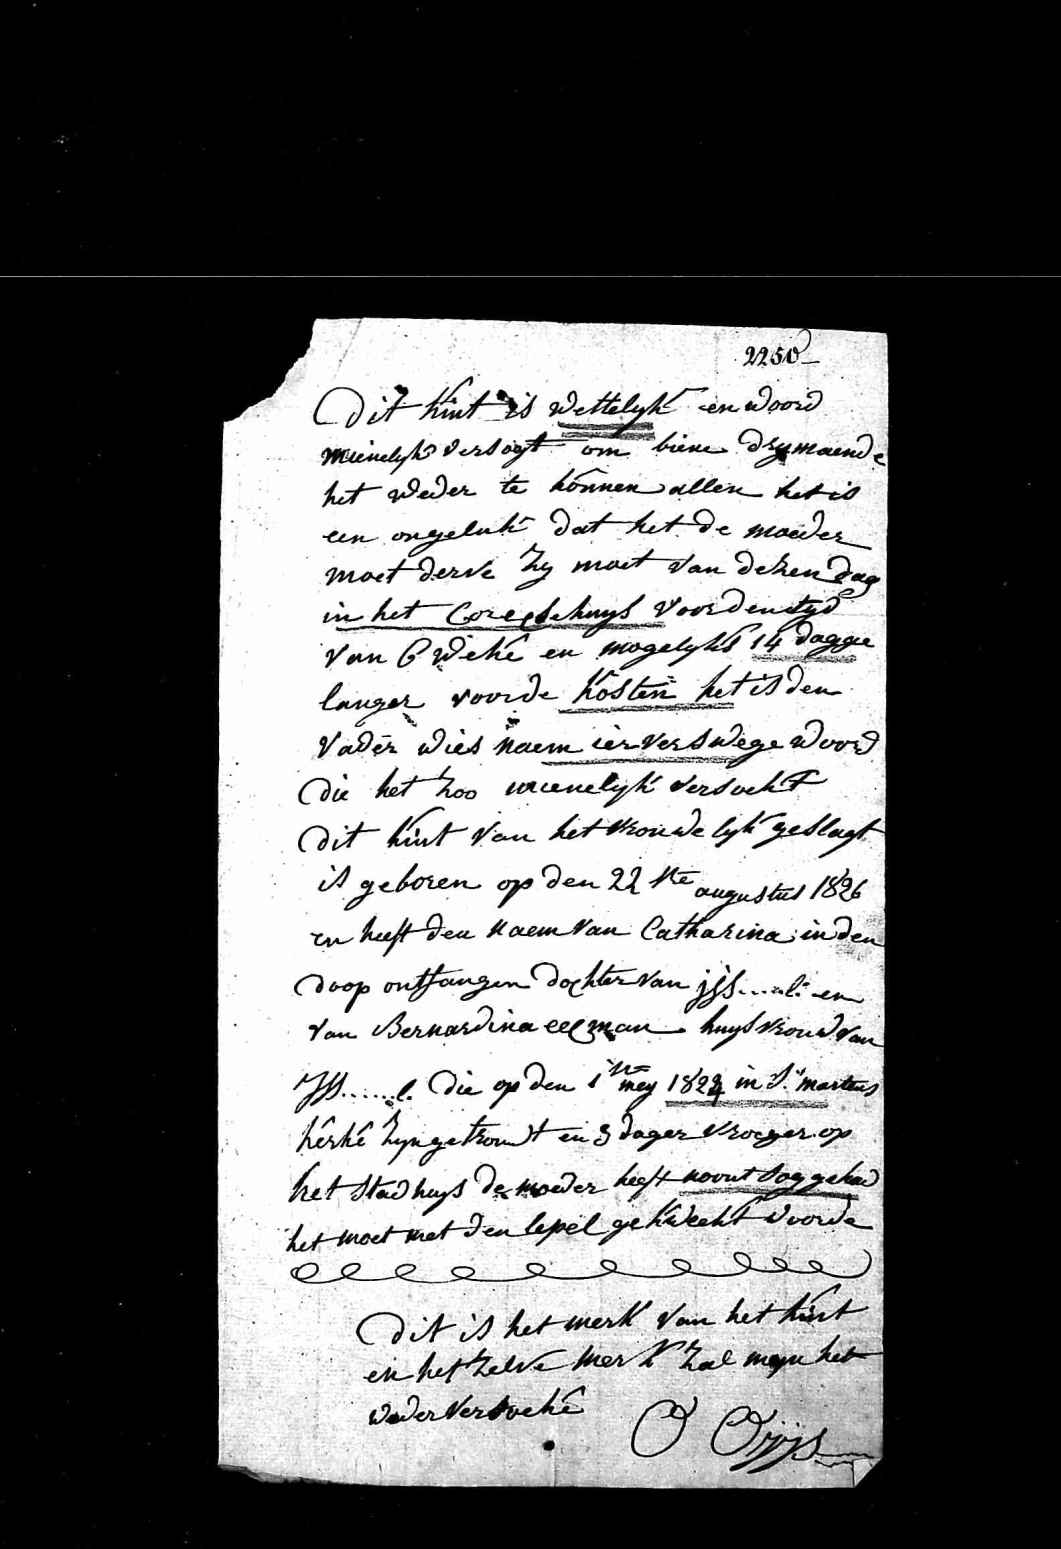 2250
Dit kint is wettelyk en woord
mienelyk versogt om biene drymaende
het weder te konnen allen het is
een ongeluk dat het de moeder
moet derve zy moet van dezen dag
in het Corecsehuys voordentyd
van 6 weke en mogelyks 14 dagge
langer voorde kosten het is den
vader wies naem ier verswege woord
die het zoo mienelyk versockt
dit kint van het vrouwelyk geslagt
is geboren op den 22 ste augustus 1826
en heeft den naem van Catharina in den
doop ontfangen dochter van jjs.....l: en
van Bernardina eecman huysvrouw van
JJS......l. die op den 1n mey 1824 in St martens
kerke zyn getrouwt en 3 dager vroeger op
het stadhuys de moeder heeft noynt sog gehad
het moet met den lepel gekweekt woorde
Dit is het merk van het kint
en het zelve merk zal meyn het
weder versoeke